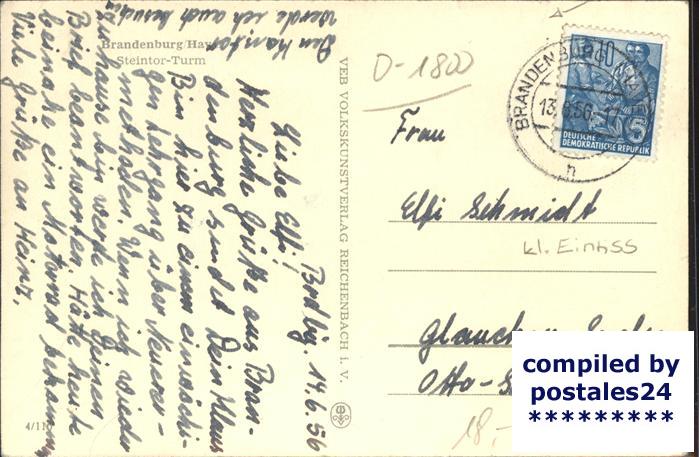 Brandenburg/Havel
Steintor-Turm
Brdbg. 14.6.56
Liebe Elfi!
Herzliche Grüße aus Bran-
denburg sendet Dein Klaus
Bin hier zu einem einwöchi-
gen Lehrgang über Neuerer-
methoden. Wenn ich wieder
zuhause bin werde ich Deinen
Brief beantworten. Hätte heute
beinahe ein Motorrad bekommen
Viele Grüße an Heinz.
Den Kantor
werde ich auch besuchen
4/110
VEB VOLKSKUNSTVERLAG REICHENBACH i. V.
D-1800
BRANDENBURG
13
56
n
10
5
DEUTSCHE
DEMOKRATISCHE REPUBLIK
Frau
Elfi Schmidt
kl. Einriss
Glauchau
Otto-
18,-
compiled by
postales24
*********